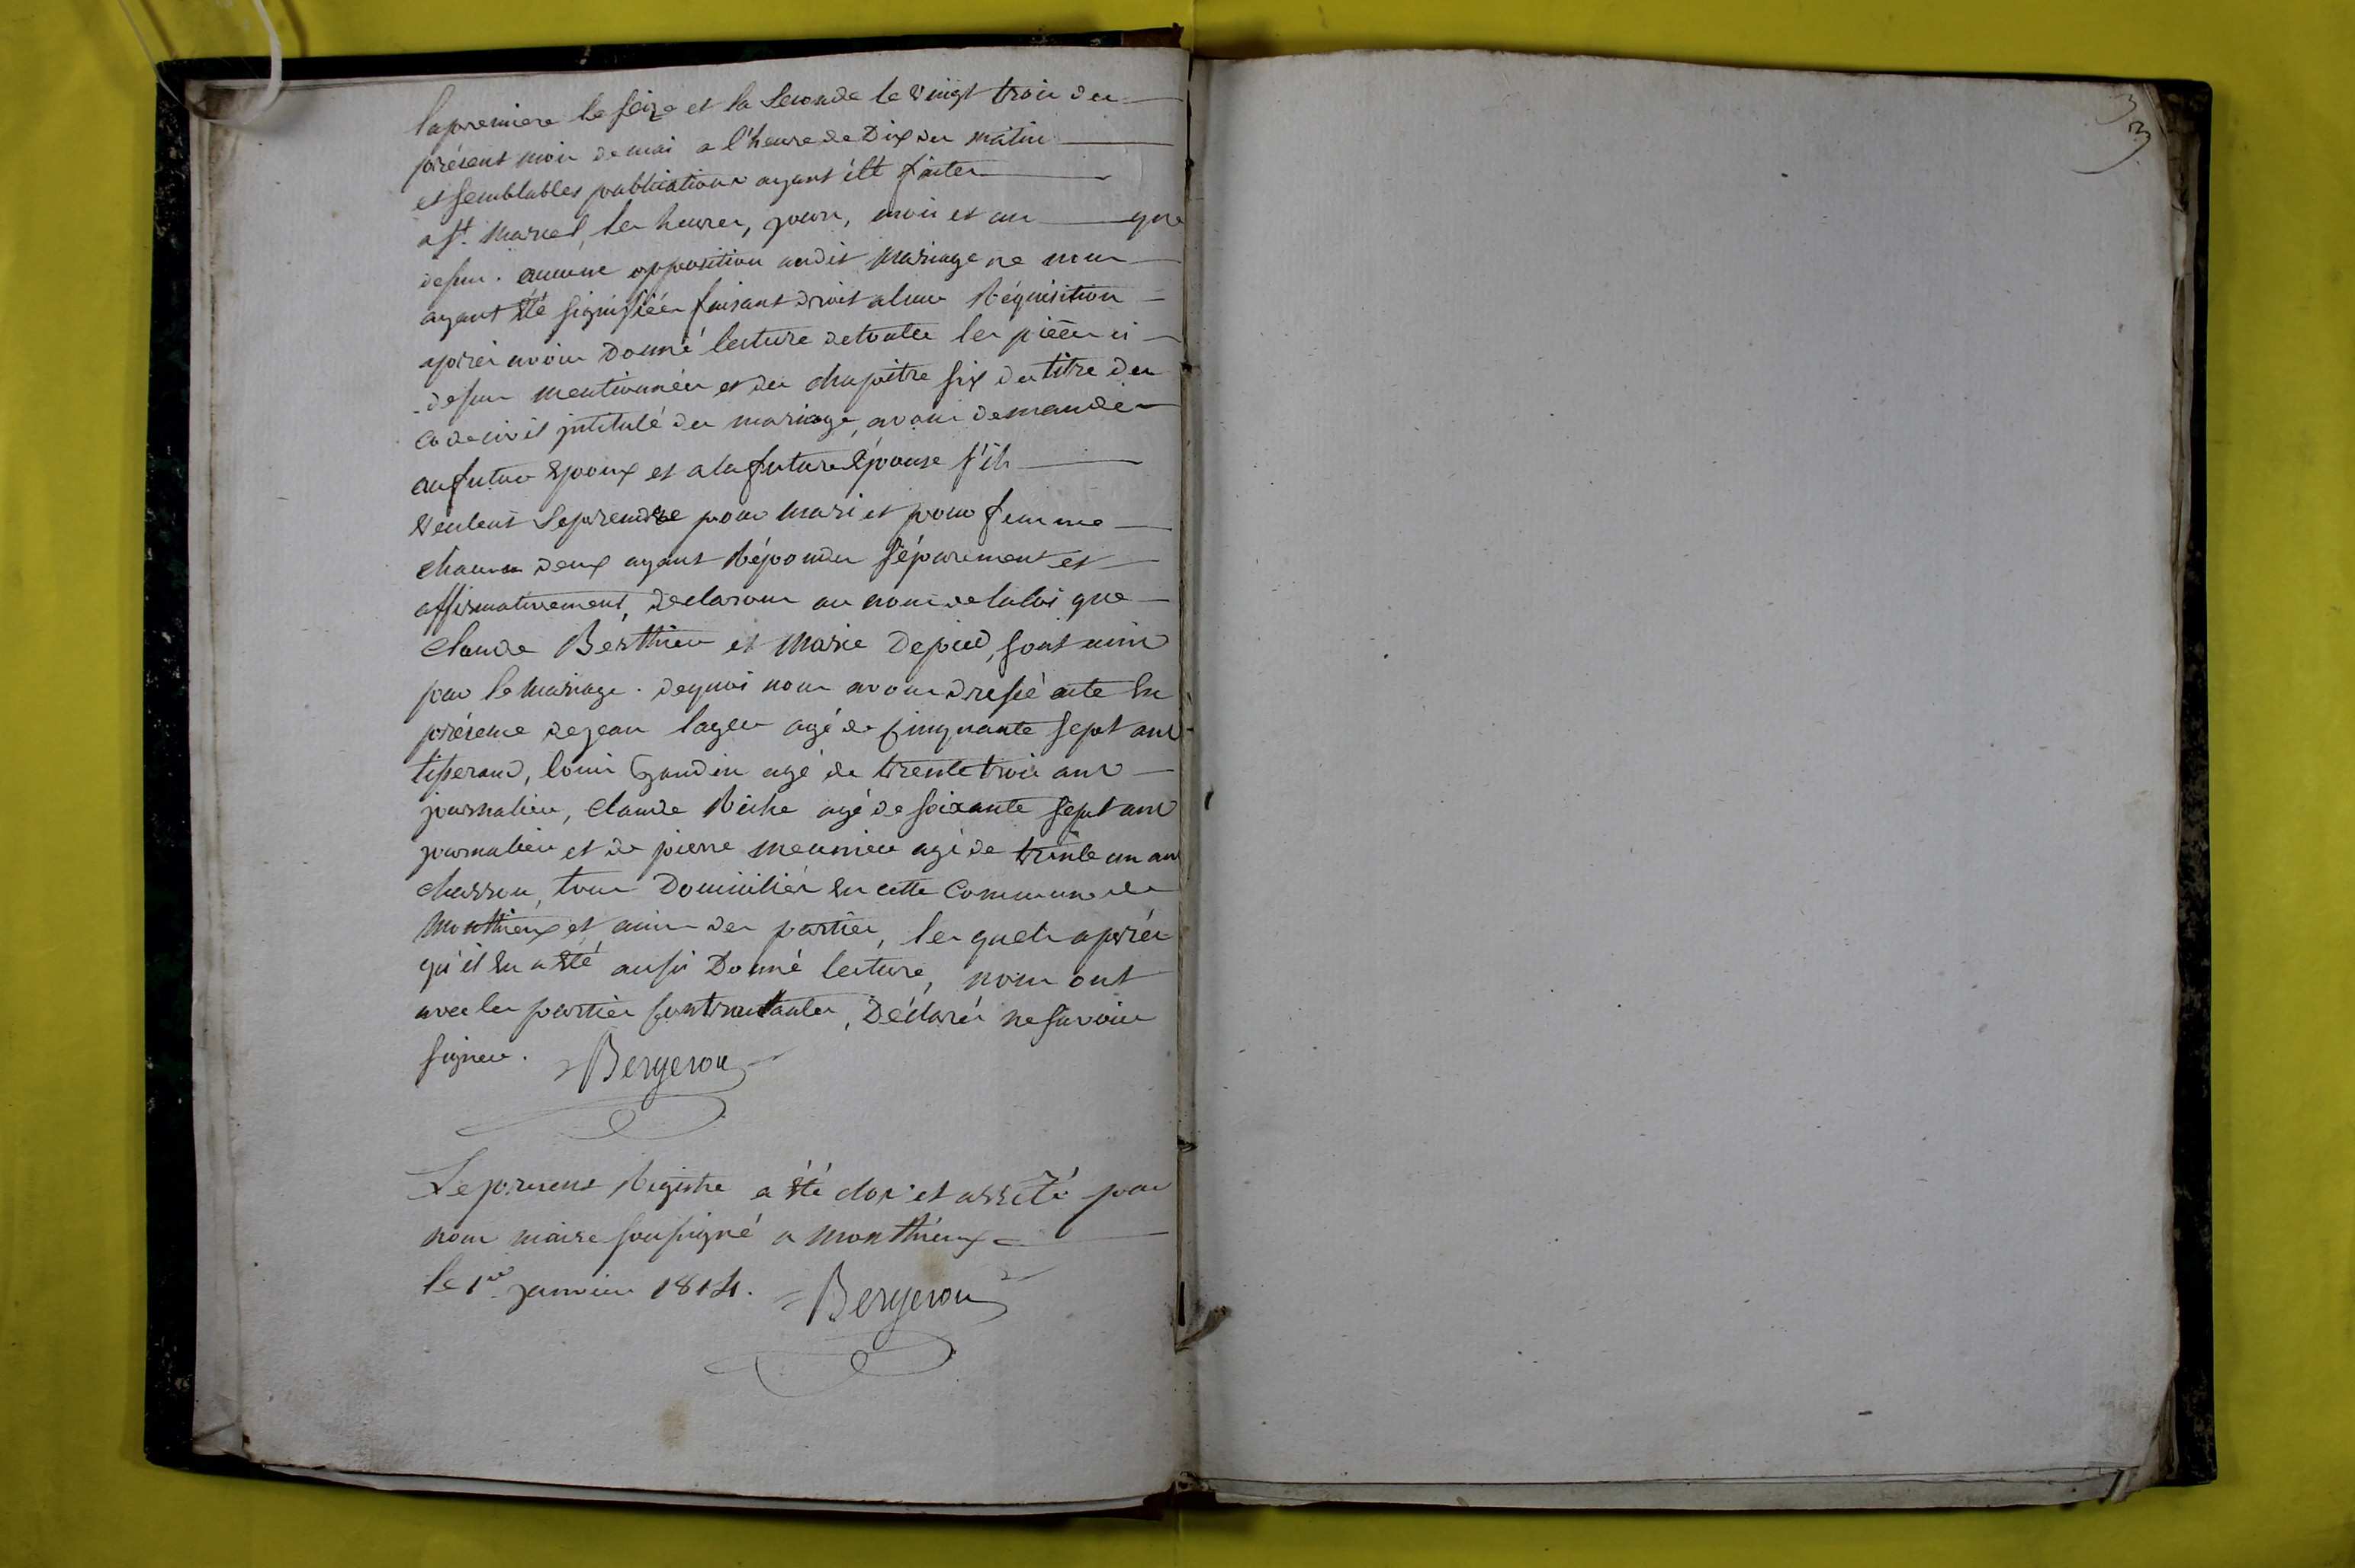 la premiere le seize et la Seconde le vingt trois du
présent mois de mai a l'heure de Dix du matin
et semblables publications ayant été faites
a St. Marcel, les heures, jours, mois et an que
dessus. aucune opposition audit mariage ne nous
ayant été signifiée, faisant droit a leur Réquisition
après avoir Donné lecture de toutes les pièces ci
-dessus mentionnées et du chapitre six du titre du
Code civil intitulé du mariage, avons demandé
au futur époux et a la future épouse s'ils
veulent se prendre pour mari et pour femme
chacun deux ayant Répondu séparément et
affirmativement, declarons au nom de la loi que
Claude Berthier et Marie Depied, sont unis
par le mariage. de quoi nous avons dressé acte en
présence de jean lager agé de cinquante sept ans
tisserand, louis Gandin agé de trente trois ans
journalier, Claude Riche agé de soixante sept ans
journalier et de pierre meunier agé de trente un ans
charron, tous Domiciliés en cette Commune de
Monthieux et amis des parties, lesquels après
qu'il en a été aussi Donné lecture, nous ont
avec les parties contractantes, Déclarés ne savoir
signer. Bergeron
Le present Registre a été clos et arrêté par
nous maire soussigné a Monthieux
le 1er janvier 1814. Bergeron
3